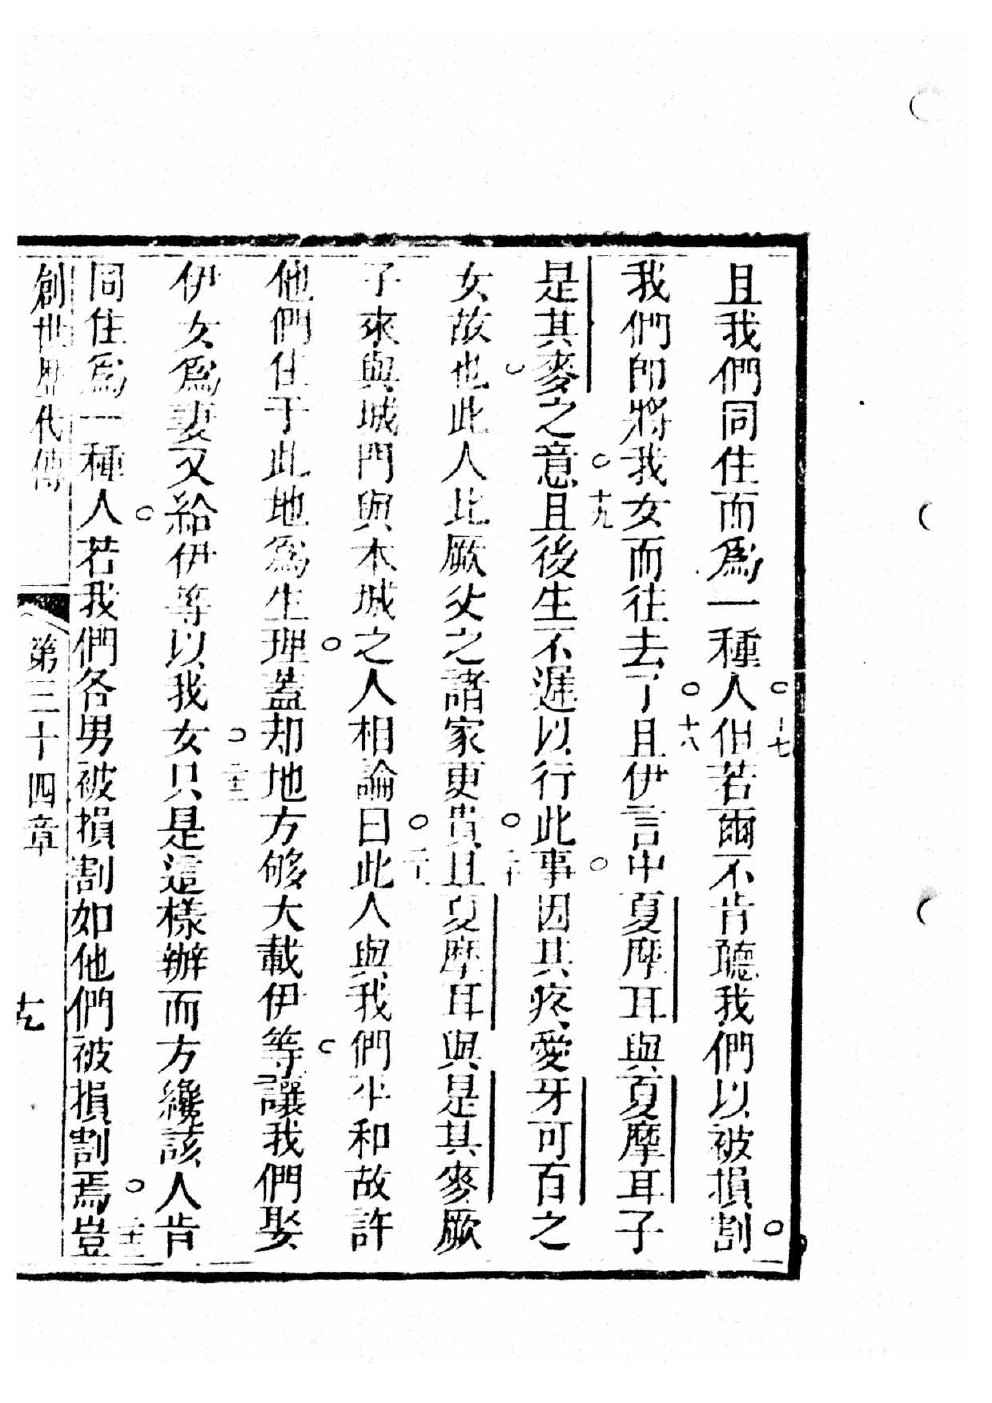 且我們同住而爲一種人○十七但若爾不肯聽我們以被損割○
我們卽將我女而往去了○十八且伊言中夏摩耳與夏摩耳子
是其麥之意○十九且後生不遲以行此事○因其疼愛牙可百之
女故也○此人比厥父之諸家更貴○二十且夏摩耳與是其麥厥
子來與城門與本城之人相論曰○二十一此人與我們平和故許
他們住于此地爲生理○蓋却地方够大載伊等○讓我們娶
伊女爲妻又給伊等以我女○二十二只是這樣辦而方纔該人肯
同住爲一種人○若我們各男被損割如他們被損割焉○二十三豈
創世歷代傳 第三十四章